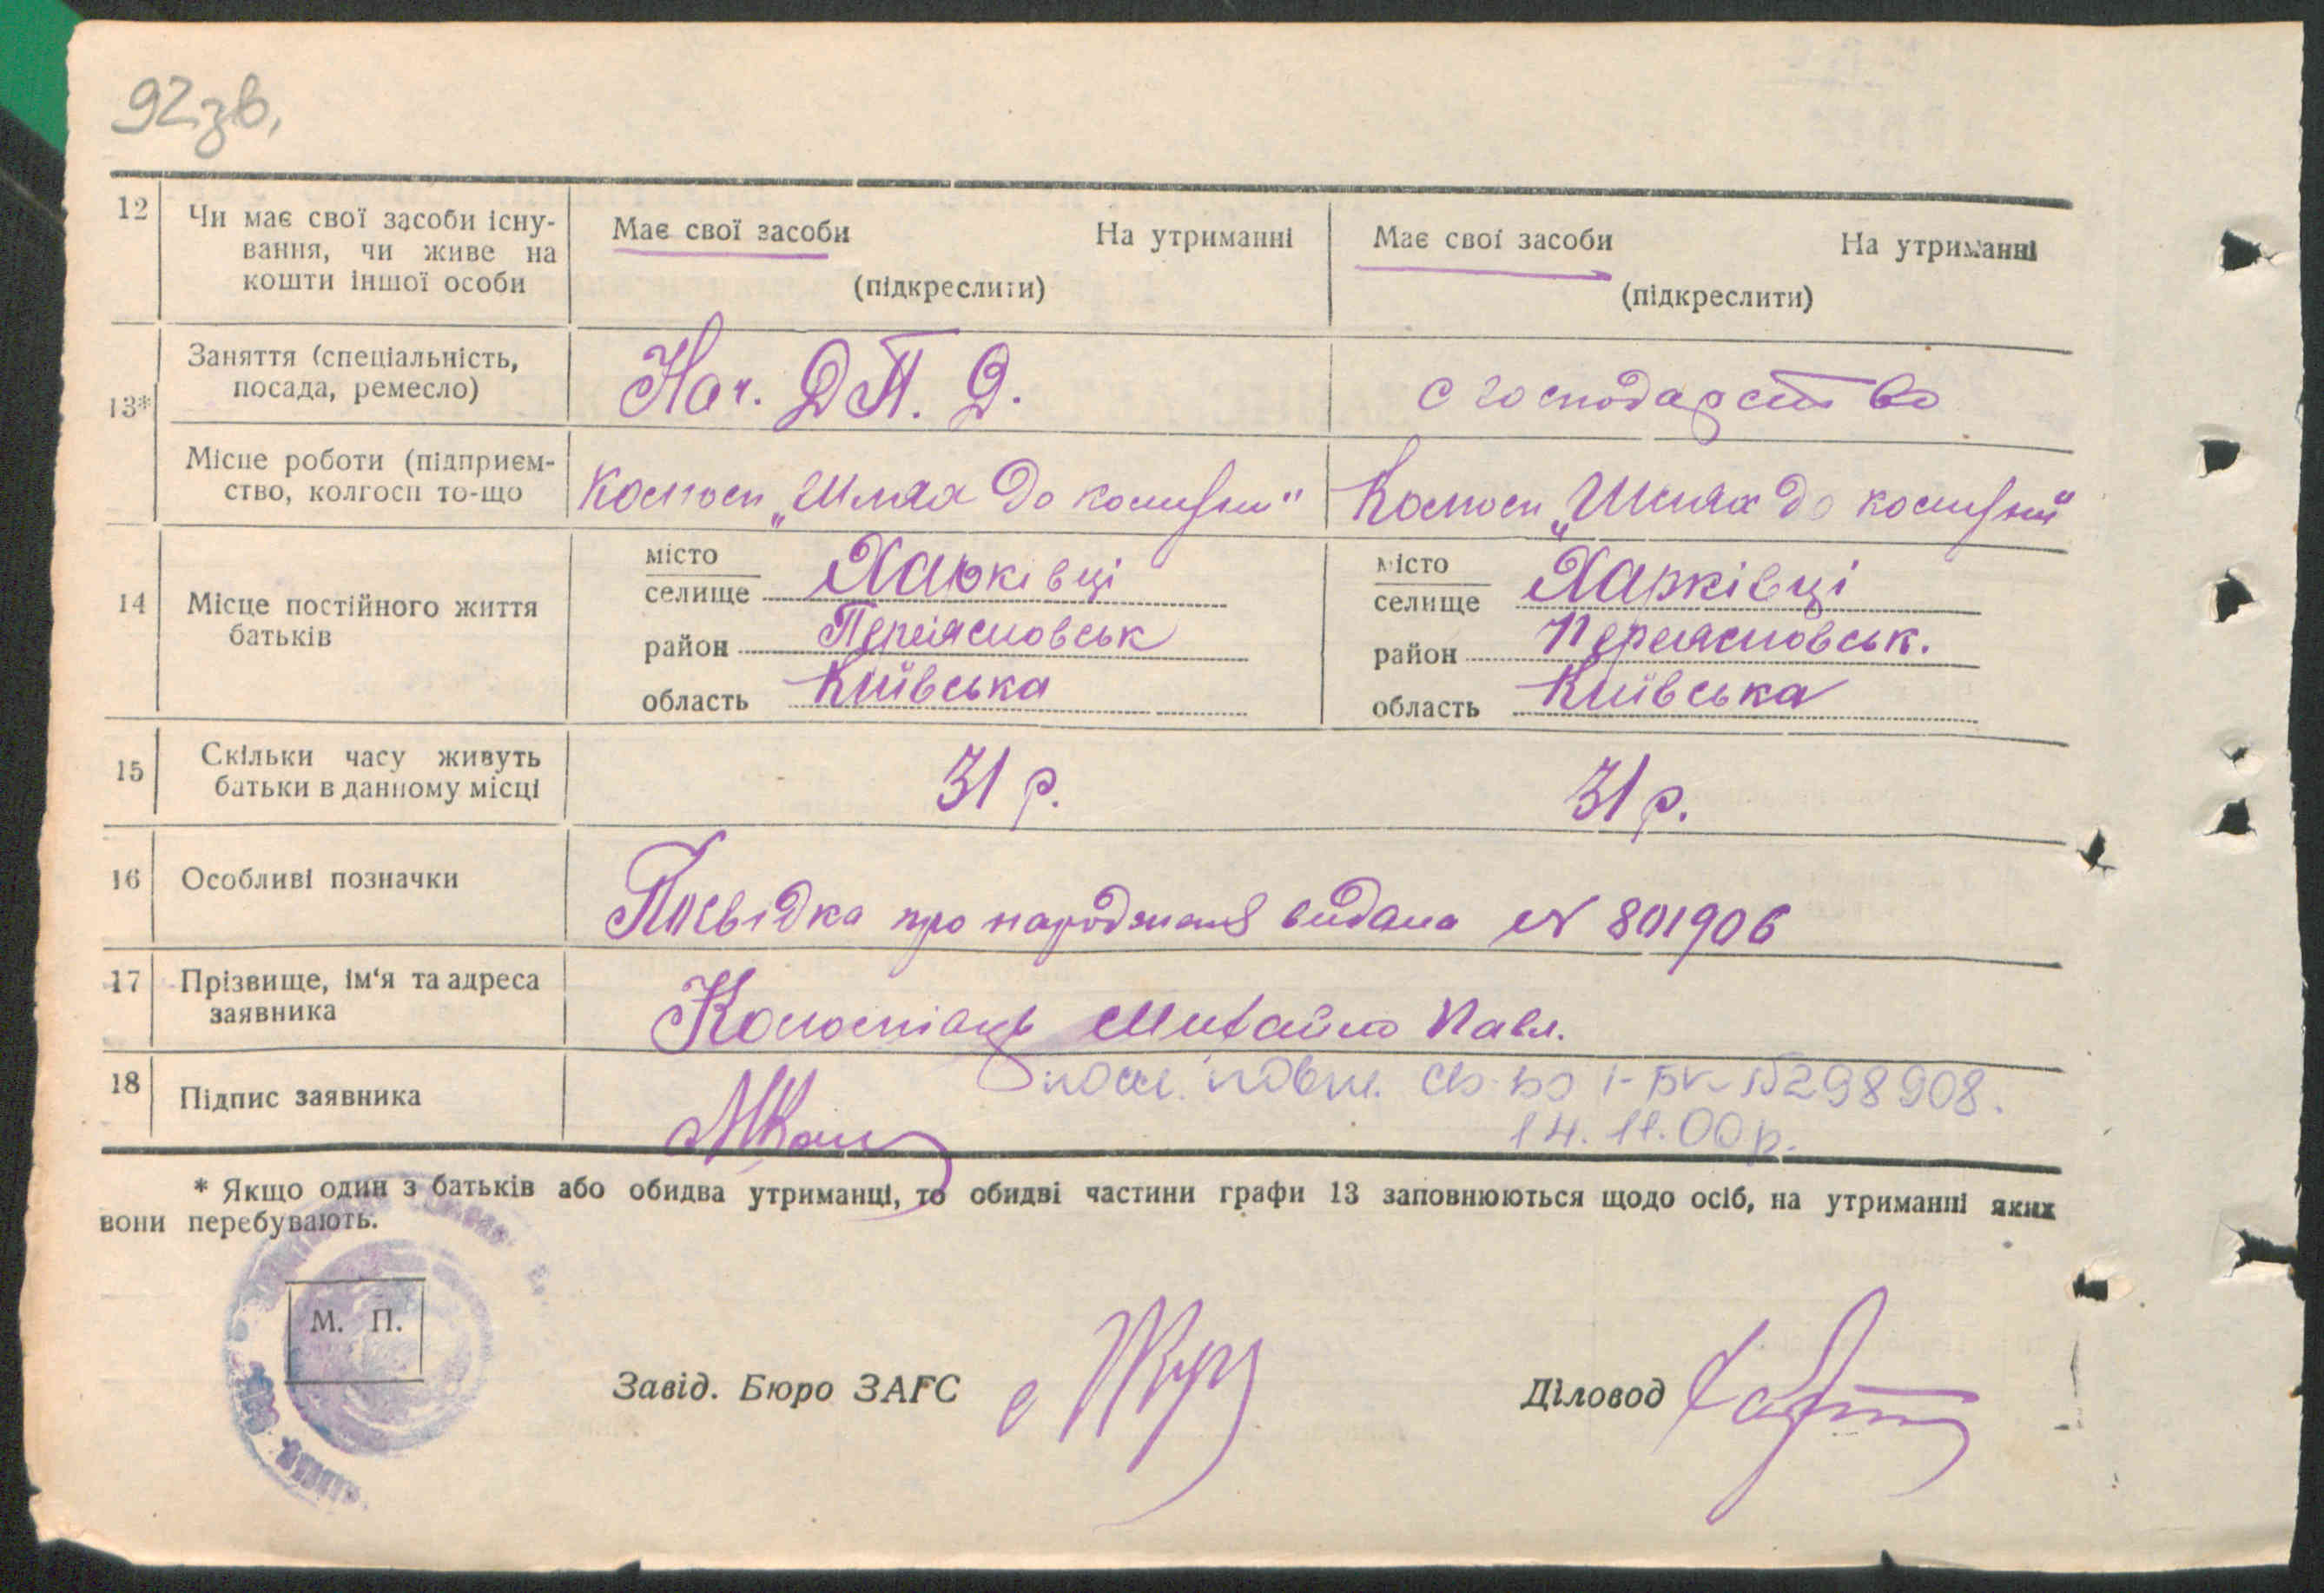 92зв.
12 Чи має свої засоби існу-
вання, чи живе на
кошти іншої особи
Має свої засоби На утриманні
(підкреслити)
Має свої засоби На утриманні
(підкреслити)
13*
Заняття (спеціальність,
посада, ремесло)
Нач. Д П. Д.
с господарство
Місце роботи (підприєм-
ство, колгосп то-що
Колгосп „Шлях до комуни"
Колгосп „Шлях до комуни"
14 Місце постійного життя
батьків
місто
селище Харківці
район Переясловськ
область Київська
місто
селище Харківці
район Переясловськ.
область Київська
15 Скільки часу живуть
батьки в данному місці
31 р.
31 р.
16 Особливі позначки
Посвідка про народження видана № 801906
17 Прізвище, ім'я та адреса
заявника
Михайло Павл.
18 Підпис заявника
повт. св-во І-БК №298908.
14.11.00р.
* Якщо один з батьків або обидва утриманці, то обидві частини графи 13 заповнюються щодо осіб, на утриманні яких
вони перебувають.
М. П.
Завід. Бюро ЗАГС
Діловод